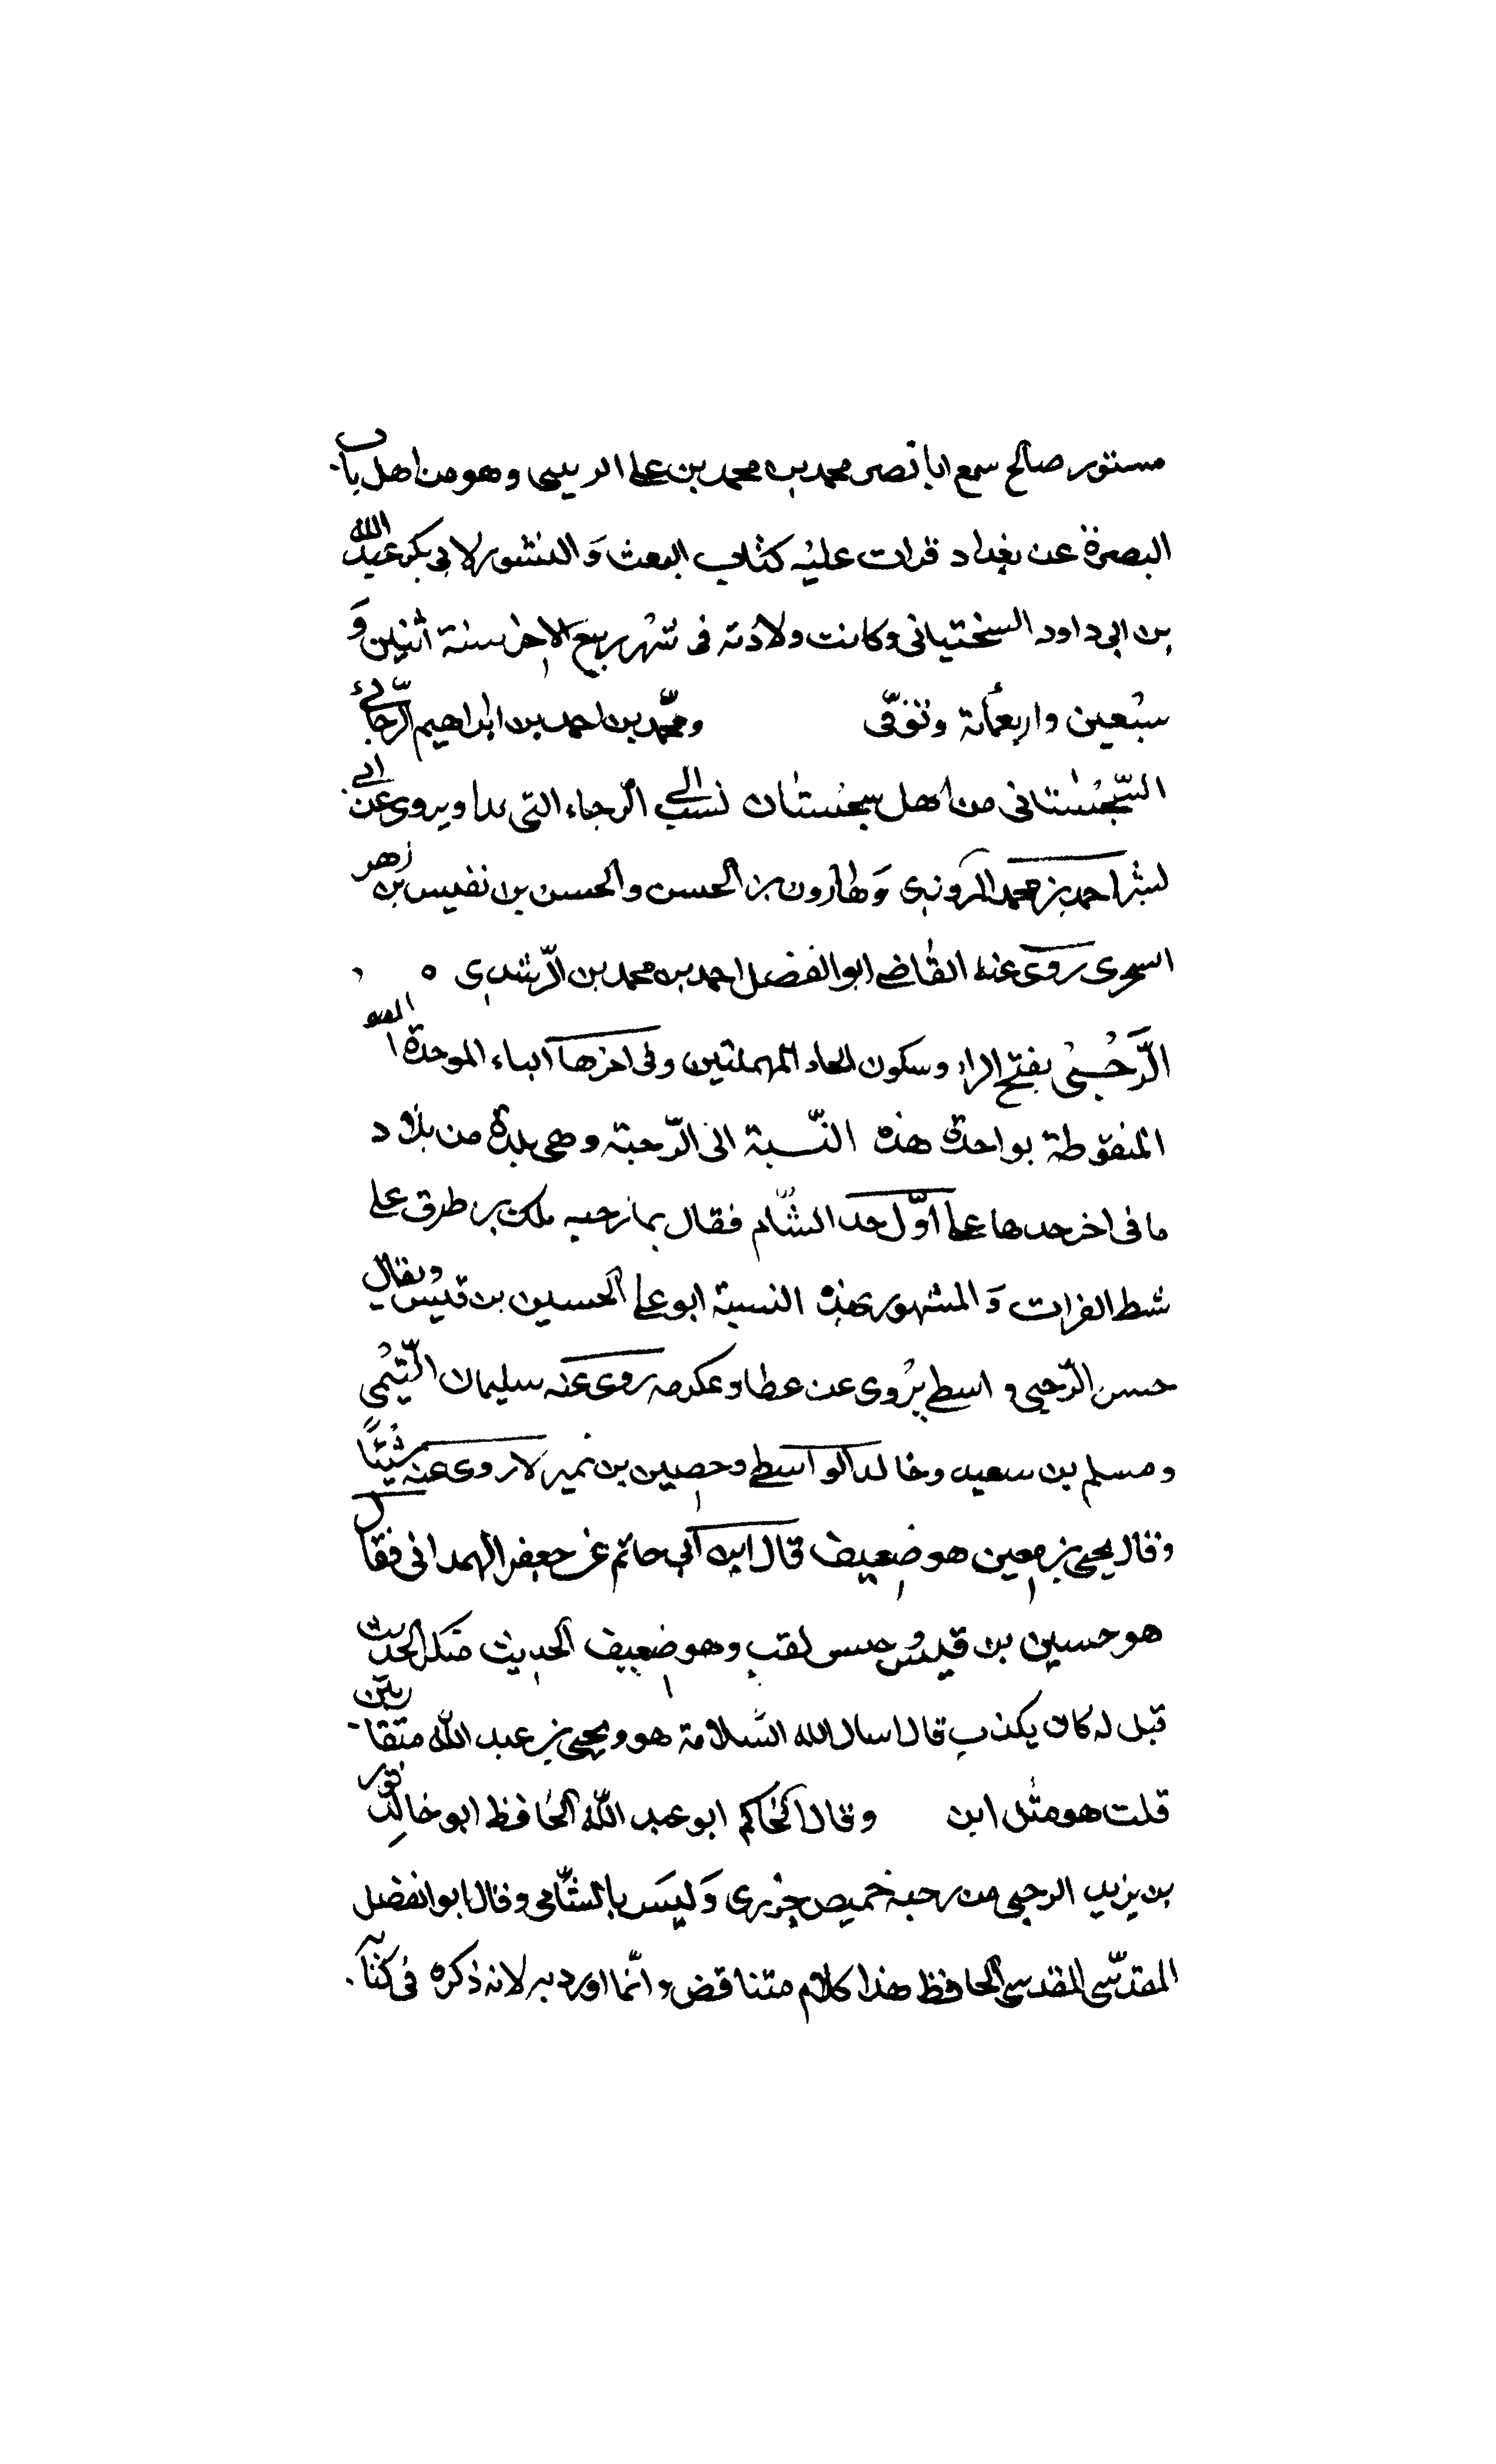 مستور صالح سمع ابا نصر محمد بن محمد بن على الزينبى وهو من اهل باب
البصرة عن بغداد قرات عليه كتاب البعث وَالنشور لابى بكر عبد الله
بن ابى داود السختيانى وكانت ولادته فى شهر ربيع الاخر سنة اثنين وَ
سبعين واربعمائة وتوفّى ومحمّد بن احمد بن ابراهيم الرّجائى
السّجستانى من اهل سجستان نسب الى الرّجاء التى ويروى عن ابى
بشر احمد بن محمد المرونى وَهارون بن الحسن والحسن بن نفيس بن زهر
السجزى روى عنه القاضى ابو الفضل احمد بن محمد بن الرّشدى ه
الرَّحْبِىُّ بفتح الراء وسكون الحاء المهملتين وفى اخرها الباء الموحدة
المنقوطة بواحدة هذه النّسبة الى الرّحبة وهى بلدة من بلاد
ما فى اخر حدها على اوّل حد الشّام فقال بها رحبه ملك بن طوق على
شط الفرات وَالمشهور بهذه النسبة ابو على الحسين بن قيس ويقال
حسن الرّحبى واسطى يرْوى عن عطا وعكرمه روى عنه سليمان التّيْمى
ومسلم بن سعيد وخالد الواسطى وحصين بن نمير لا روى عنه شيئًا
وقال يحيى بن معين هو ضعيف قال ابن ابى حاتم عن جعفر الهمدانى فقال
هو حسين بن قيس وحسن لقب وهو ضعيف الحديث منكر الحديث
قيل له كان يكذب قال اسال الله السّلامة هو ويحيى بن عبد الله متقاربين
قلت هو مثل ابن وقال الحاكم ابو عبد اللّه الحافظ ابو خالد ثور
بن يزيد الرحبى من رحبة خميص جزرى وَليسَ بالشّامى وقال ابو الفضل
المقدّسى المقدسى الحافظ هذا كلام متناقض وانّما اورد به لانه ذكره فى كتابه